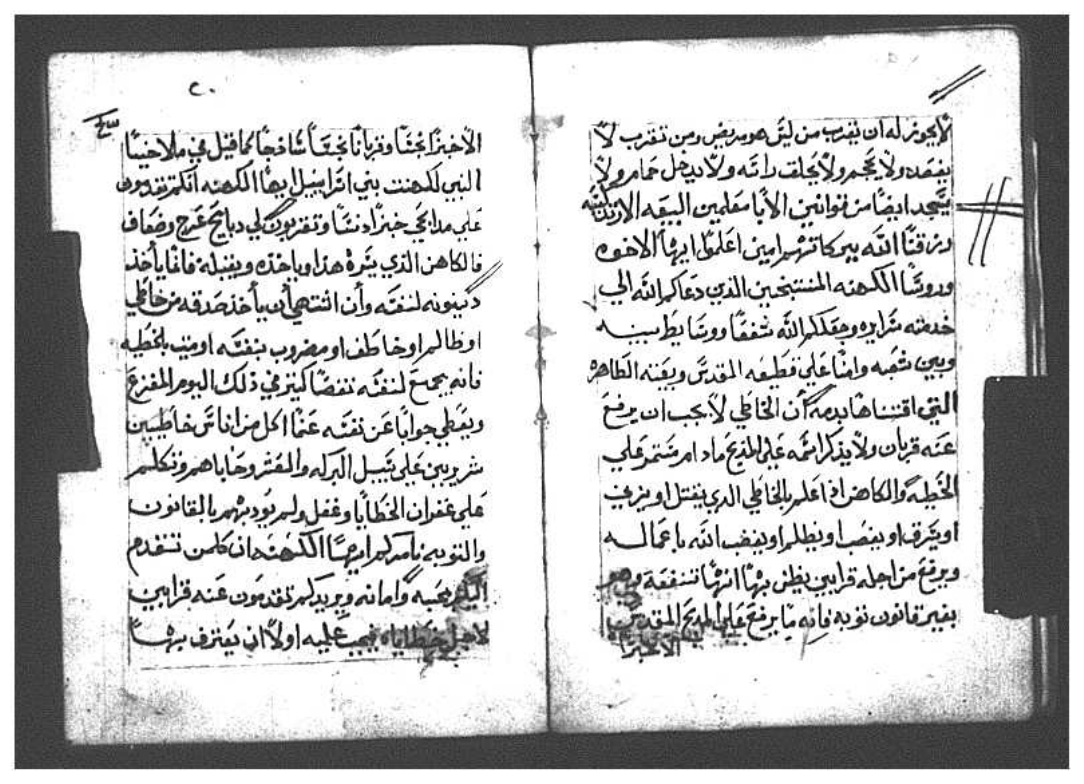 لايجوز له ان يقدب من ليس هو مريض ومن تقرب لا
يفصد ولا يحجم ولا يحلق راسه ولا يدخل حمام ولا
يسجد ايضا من قوانين الابا معلمين البيعه الارتدكسيه
رزقنا الله ببركاتهم امين اعلموا ايها الاخوه
وروسا الكهنه المنتجبين الذين دعاكم الله الي
خدمة سرايره وجعلكم الله شفعا ووسايط بينه
وبين شعبه وامنا علي قطيعه المقدس وبيعته الطاهره
التي اقتناها بدمه أن الخاطي لا يجب ان يرفع
عنه قربان ولا يذكر اسمه علي المدبح مادام مستمر علي
الخطيه والكاهن اذا علم بالخاطي الدي يقتل او يزني
او يسرق او يغصب او يظلم او يغضب الله باعماله
ويرفع من اجله قرابين يظن بها انها تنفعه وهو
بغير قانون توبه فانه ما يرفع علي المدبح المقدس
الاخبزا
٢٠
الاخبزا نجسا وقربانا نجسا كما قيل في ملاخيا
النبي لكهنت بني اسراييل ايها الكهنه انكم تقدمون
علي مدابحي خبزا دنسا وتقربون لي دبايح عرج وضعاف
فالكاهن الذي يسره هذا وياخذه ويقبله فانما ياخذ
دينونه لنفسه وأن اشتهي أن يأخذ صدقه من خاطي
او ظالم او خاطف او مضروب بنفسه او منب بالخطيه
فانه يجمع لنفسه نقصا كبير في ذلك اليوم المفزع
ويعطي جوابا عن نفسه عما اكل من اناس خاطيين
شريرين علي سبيل البركه والعشر وحاباهم وتكلم
علي غفران الخطايا وغفل ولم يودبهم بالقانون
والتوبه نامركم ايها الكهنه ان كلمن تقدم
اليكم بمحبه وامانه ويريدكم تقدمون عنه قرابين
لاجل خطاياه فيجب عليه اولا ان يعترف بها